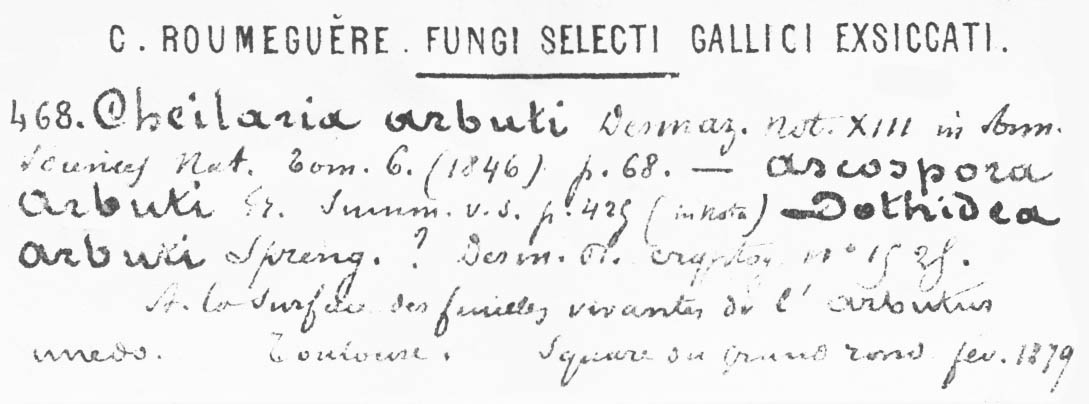 C. ROUMEGUĚRE. FUNGI SELECTI GALLICI EXSICCATI.
468. Cheilaria arbuti Desmaz. Not. XIII in Ann.
Sciences Nat. Tom. 6. (1846) p. 68. — Ascospora
arbuti Fr. Summ. v. s. p. 425 (in nota) — Dothidea
arbuti Spreng. ? Desm. Pl. cryptog n° 1525.
A la surface des feuilles vivantes de l' arbutus
unedo. Toulouse. Square du grand rond fev. 1879